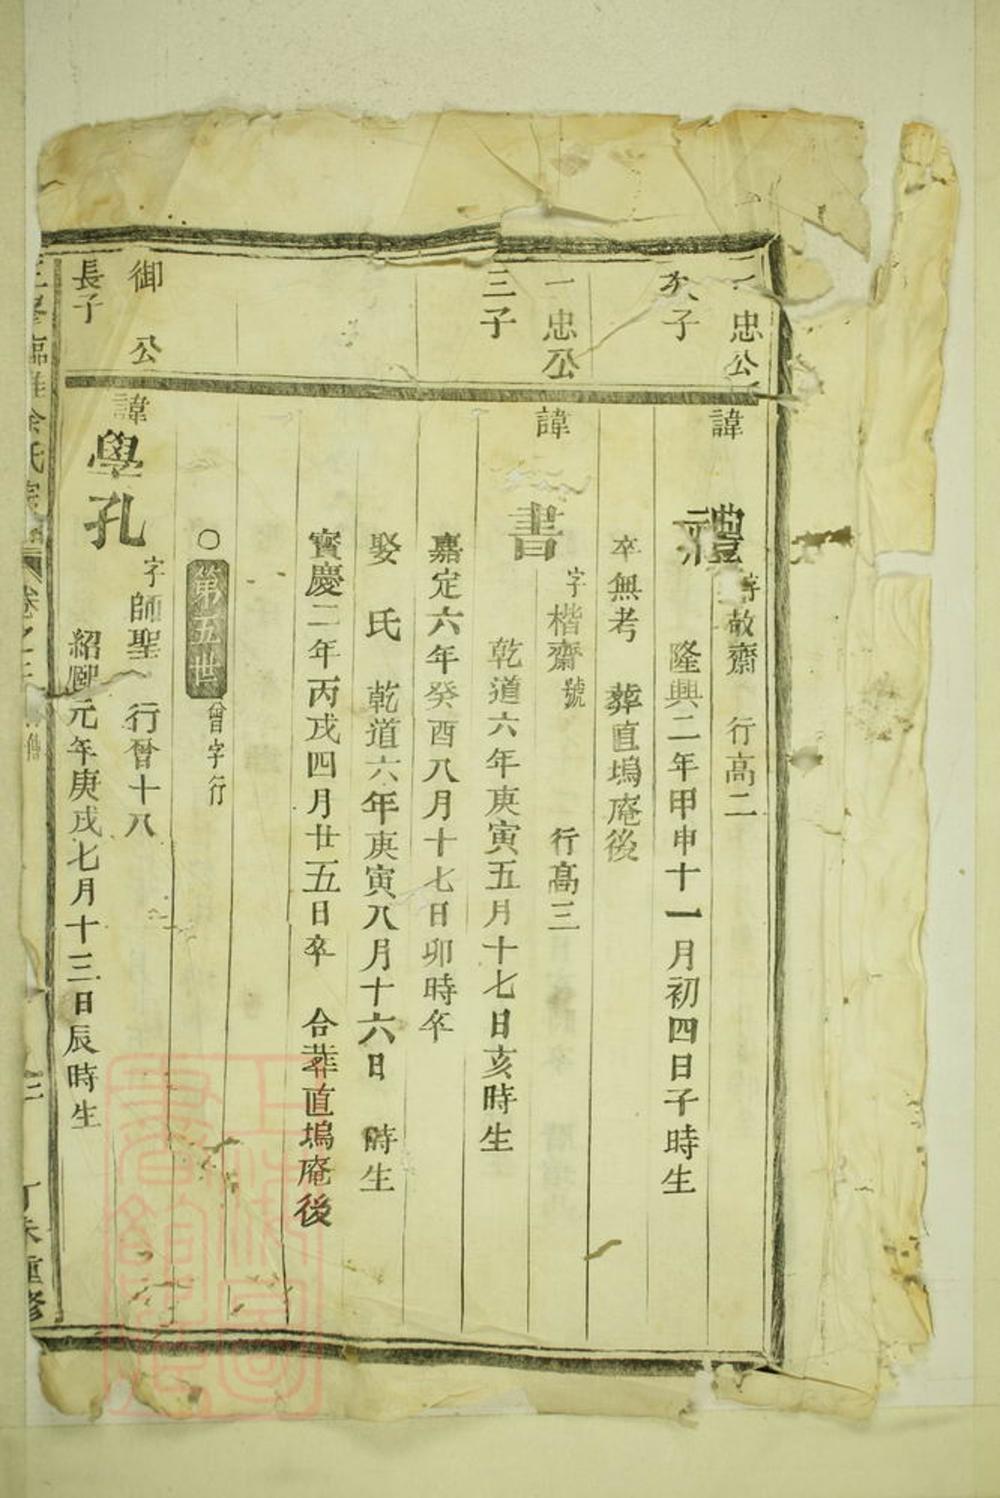 忠公
次子
諱禮字敬齋 行高二
隆興二年甲申十一月初四日子時生
卒無考 葬直塢庵後
一忠公
三子
諱書字楷齋號 行高三
乾道六年庚寅五月十七日亥時生
嘉定六年癸酉八月十七日卯時卒
娶 氏 乾道六年庚寅八月十六日 時生
寶慶二年丙戌四月廿五日卒 合葬直塢庵後
○第五世曾字行
御 公
長子
諱學孔字師聖 行曾十八
紹熙元年庚戌七月十三日辰時生
臨 余氏宗 卷之 丁未重修